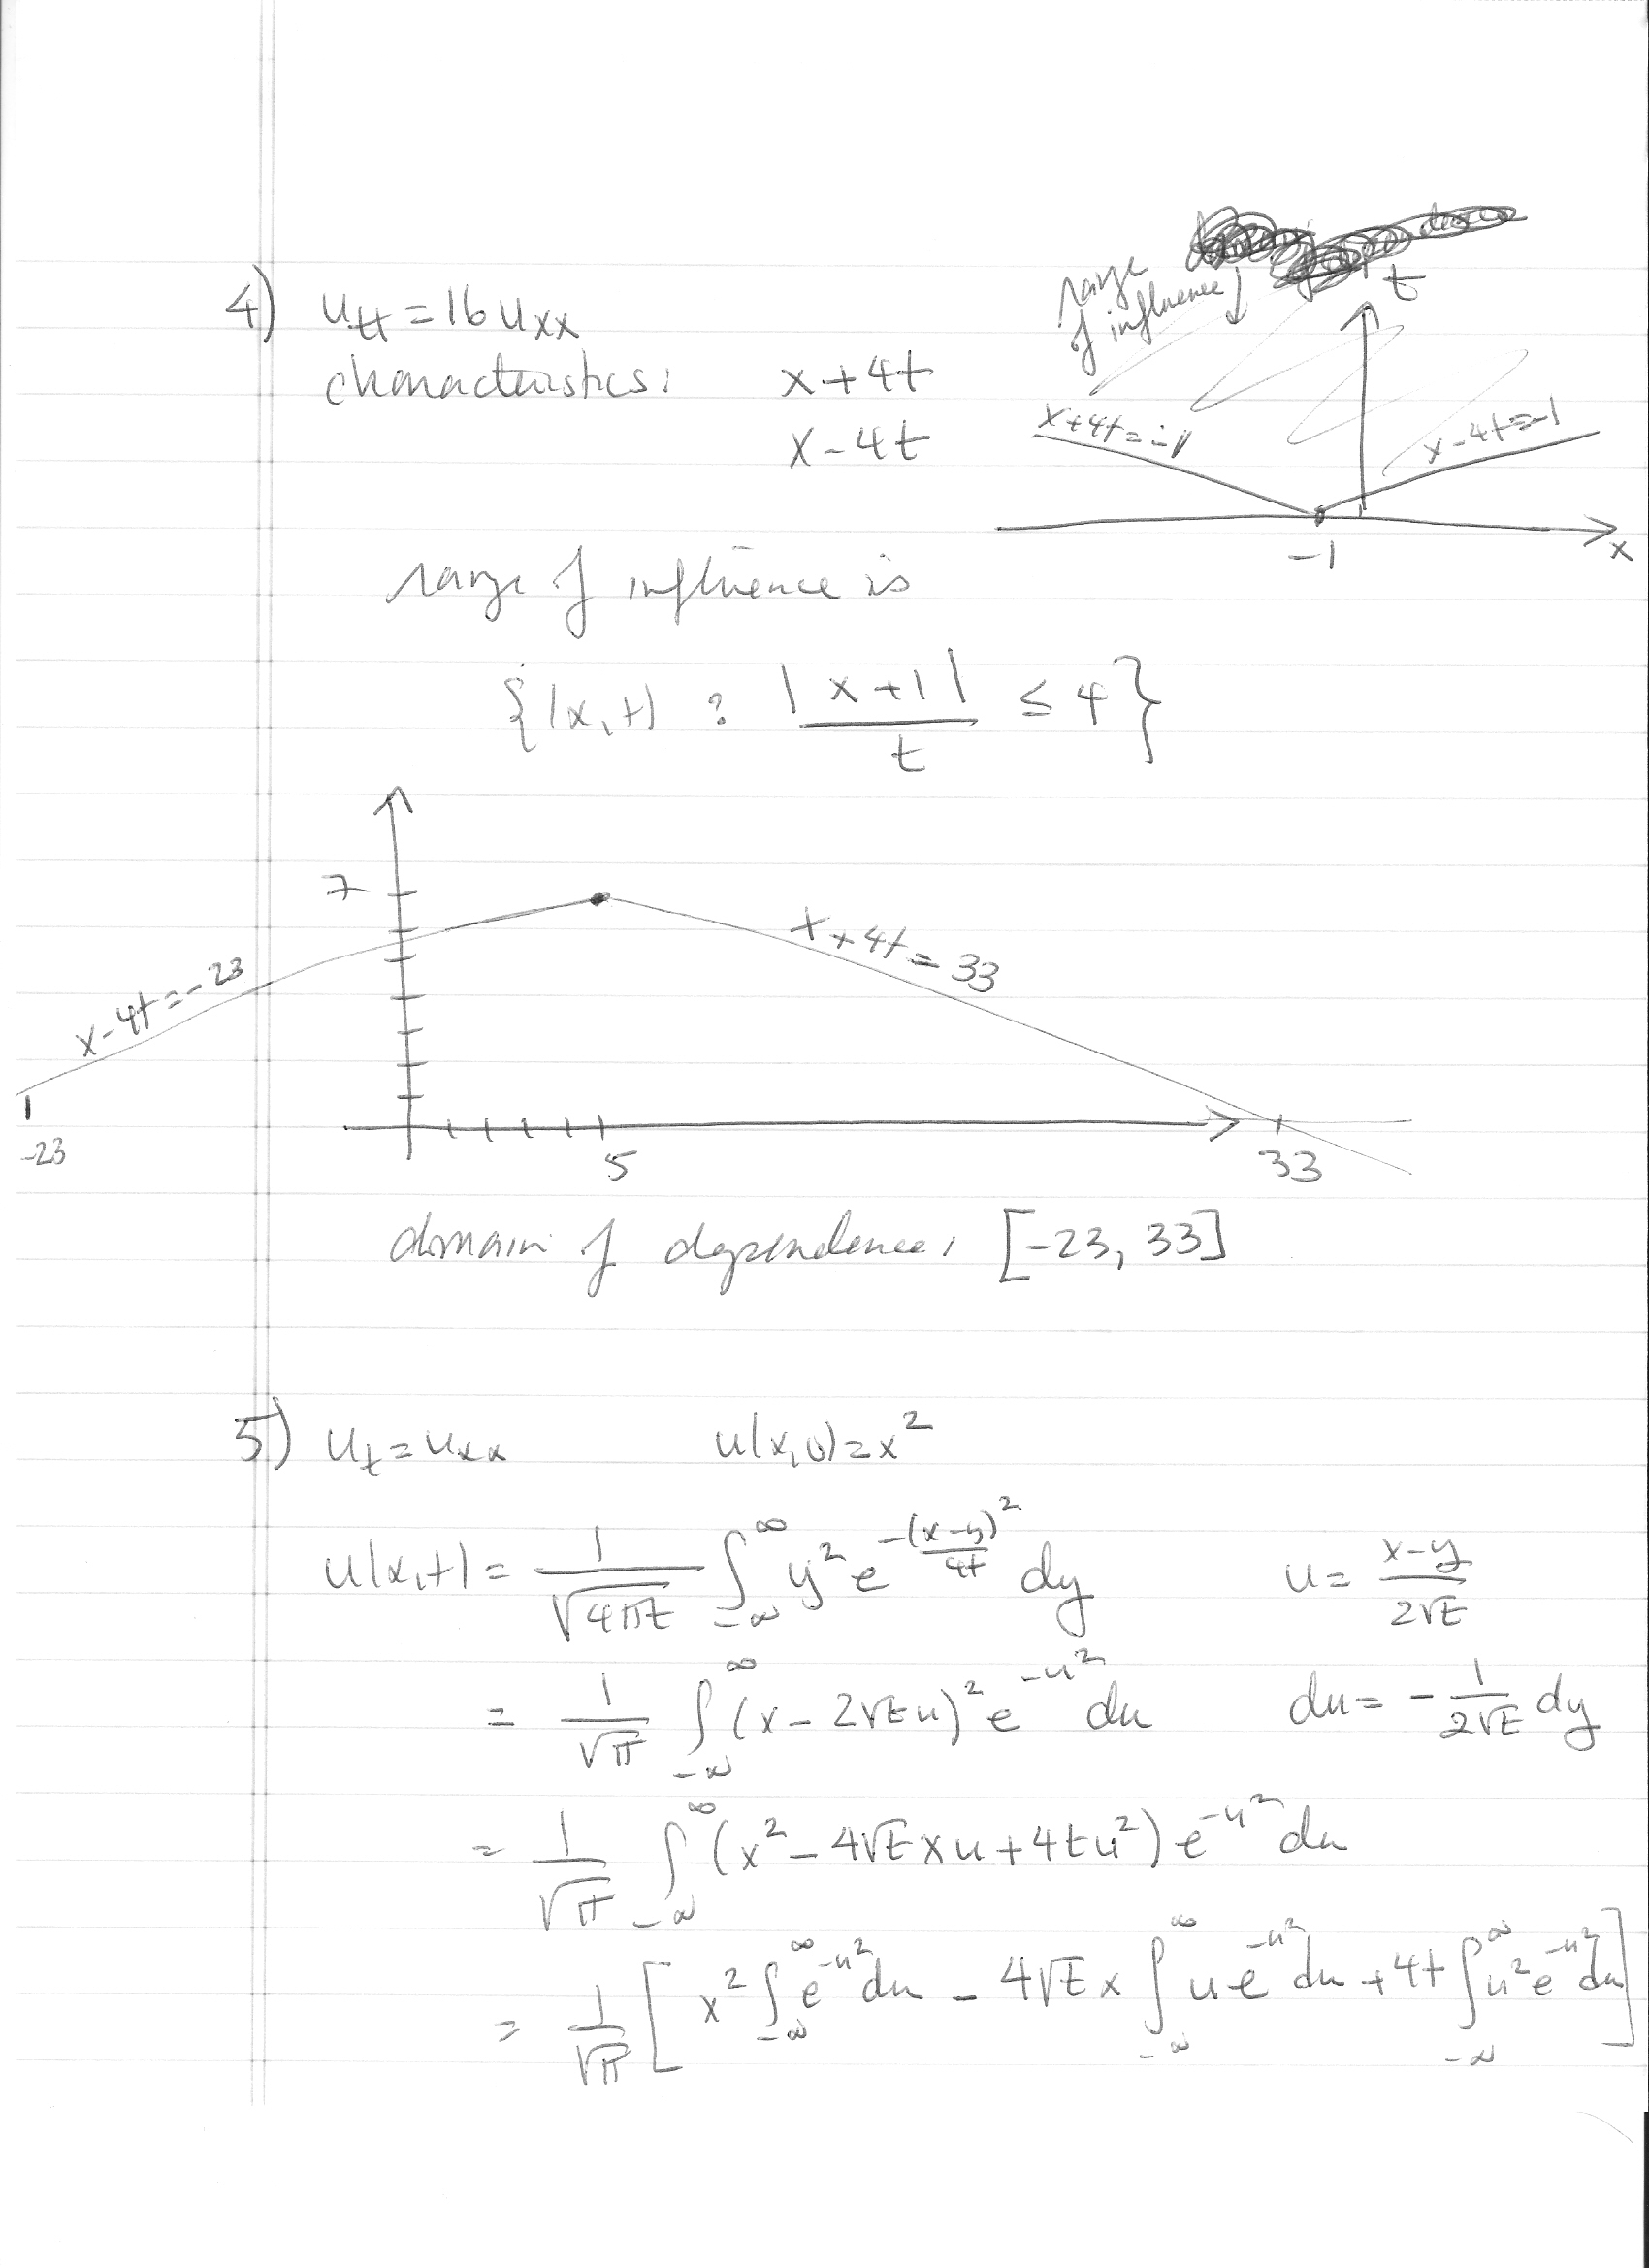 4) u_tt = 16 u_xx
characteristics: x+4t
x-4t
range
of influence
t
x+4t=-1
x-4t=-1
-1
x
range of influence is
{(x,t) : |x+1|/t ≤ 4}
7
x-4t=-23
x+4t=33
-23
5
33
domain of dependence: [-23, 33]
5) u_t = u_xx u(x,0)=x^2
u(x,t) = 1/√(4πt) ∫_{-∞}^{∞} y^2 e^{-(x-y)^2/4t} dy u = (x-y)/(2√t)
= 1/√π ∫_{-∞}^{∞} (x-2√t u)^2 e^{-u^2} du du = -1/(2√t) dy
= 1/√π ∫_{-∞}^{∞} (x^2 - 4√t x u + 4t u^2) e^{-u^2} du
= 1/√π [ x^2 ∫_{-∞}^{∞} e^{-u^2} du - 4√t x ∫_{-∞}^{∞} u e^{-u^2} du + 4t ∫_{-∞}^{∞} u^2 e^{-u^2} du ]